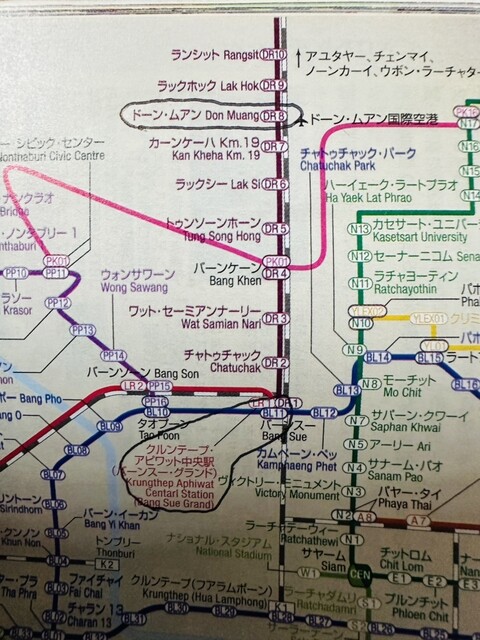 ランシット Rangsit DR10
アユタヤー、チェンマイ、
ノーンカーイ、ウボン・ラーチャタ
ラックホック Lak Hok DR9
ドーン・ムアン Don Muang DR8
ドーン・ムアン国際空港
PK16
N17
カーンケーハ Km.19
Kan Kheha Km. 19
DR7
N16
シビック・センター
Nonthaburi Civic Centre
チャトゥチャック・パーク
Chatuchak Park
N15
ラックシー Lak Si DR6
ハーイェーク・ラートプラオ
Ha Yaek Lat Phrao
N14
トゥンソーンホーン
Tung Song Hong
DR5
N13
カセサート・ユニバー
Kasetsart University
・ノンタブリー 1
PK01
PP10
PP11
ウォンサワーン
Wong Sawang
バーンケーン
Bang Khen
PK01
DR4
N12
セーナーニコム Sena
N11
ラチャヨーティン
Ratchayothin
PP12
ワット・セーミアンナーリー
Wat Samian Nari
DR3
YLEX2
N10
YLEX01
PP13
PP14
チャトゥチャック
Chatuchak
DR2
N9
BL14
YL01
BL15
バーンソーン Bang Son
LR2
PP15
BL13
N8
モーチット
Mo Chit
BL16
Bang Pho
PP16
BL10
BL11
BL12
BL09
タオプーン
Tao Poon
バーンスー
Bang Sue
N7
サパーン・クワーイ
Saphan Khwai
BL08
クルンテープ・
アピワット中央駅
(バーンスー・グランド)
Krungthep Aphiwat
Centarl Station
(Bang Sue Grand)
カムペーン・ペッ
Kamphaeng Phet
N5
アーリー Ari
BL07
N4
サナーム・パオ
Sanam Pao
ヴィクトリー・モニュメント
Victory Monument
N3
パヤー・タイ
Phaya Thai
Sirindhorn
BL06
バーン・イーカン
Bang Yi Khan
N2
A8
A7
ラーチャテーウィー
Ratchathewi
N1
BL05
トンブリー
Thonburi
K2
ナショナル・スタジアム
National Stadium
サヤーム
Siam
チットロム
Chit Lom
BL04
W1
CEN
E1
E2
E3
ファイチャイ
Fai Chai
クルンテープ(フアラムポーン)
Krungthep (Hua Lamphong)
ラーチャダムリ
Ratchadamri
プルンチット
Phloen Chit
Tha Phra
BL03
チャラン 13
Charan 13
BL02
BL30
BL29
K1
BL28
BL27
S1
BL01